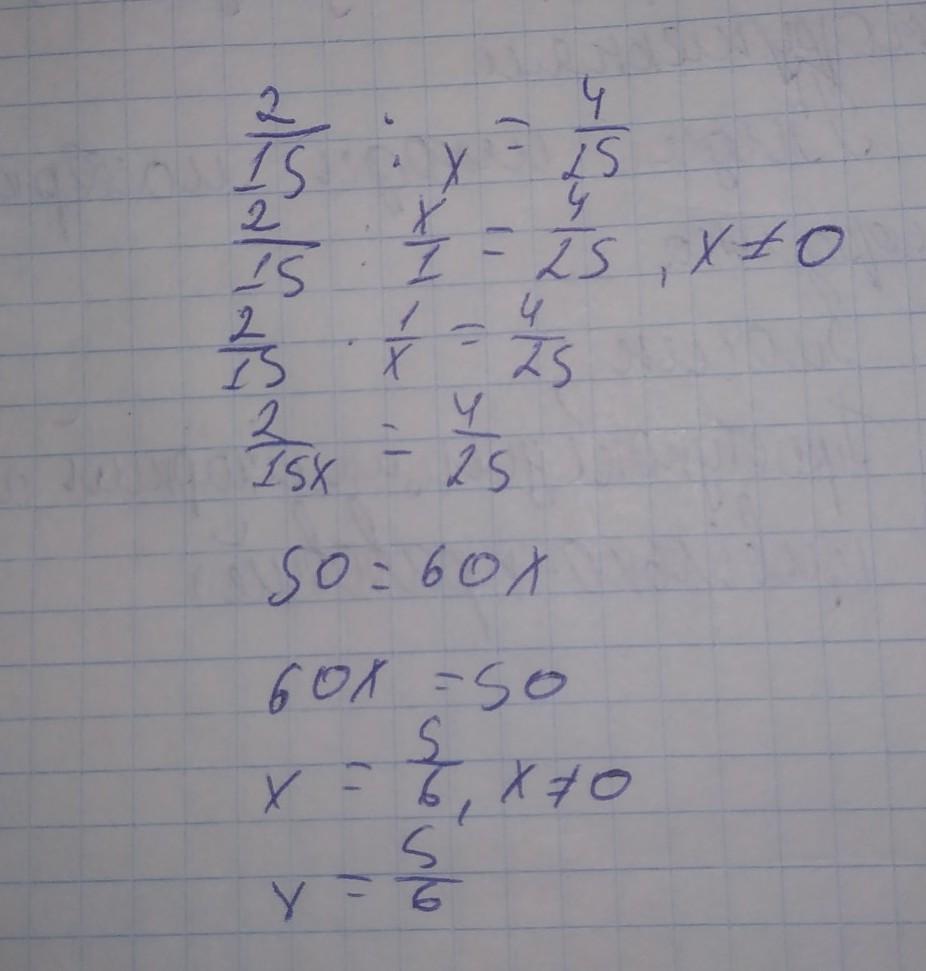 2/15 : x = 4/25
2/15 : x/1 = 4/25, x ≠ 0
2/15 · 1/x = 4/25
2/15x = 4/25
50 = 60x
60x = 50
x = 5/6, x ≠ 0
x = 5/6